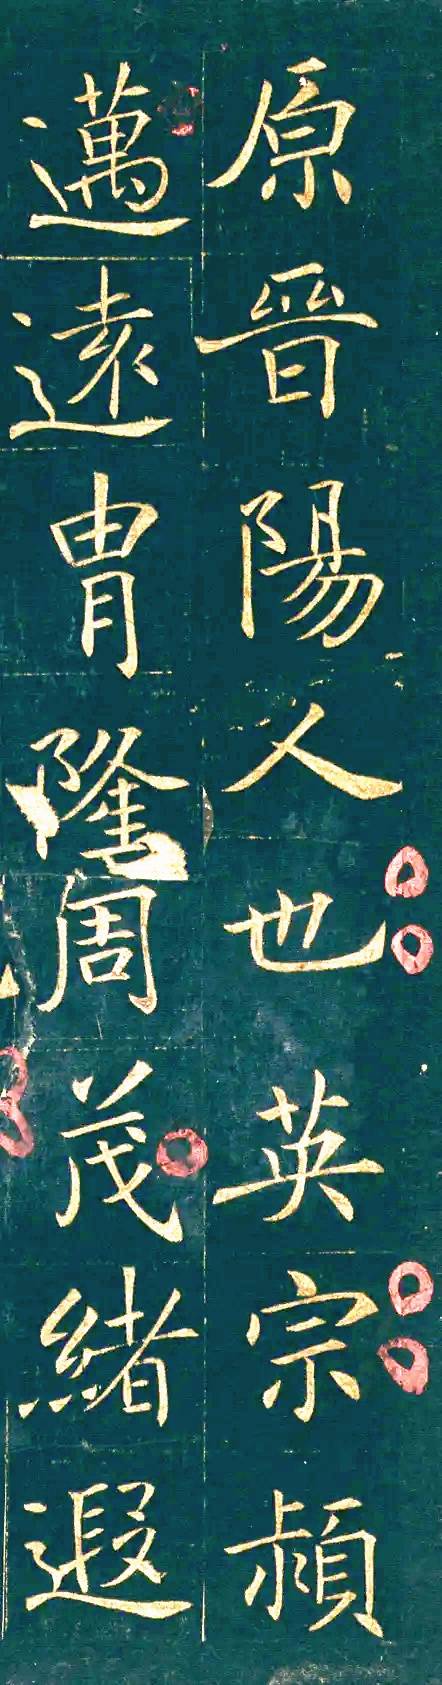 原晉陽人也英宗頻
邁遠胄隆周茂緒遐